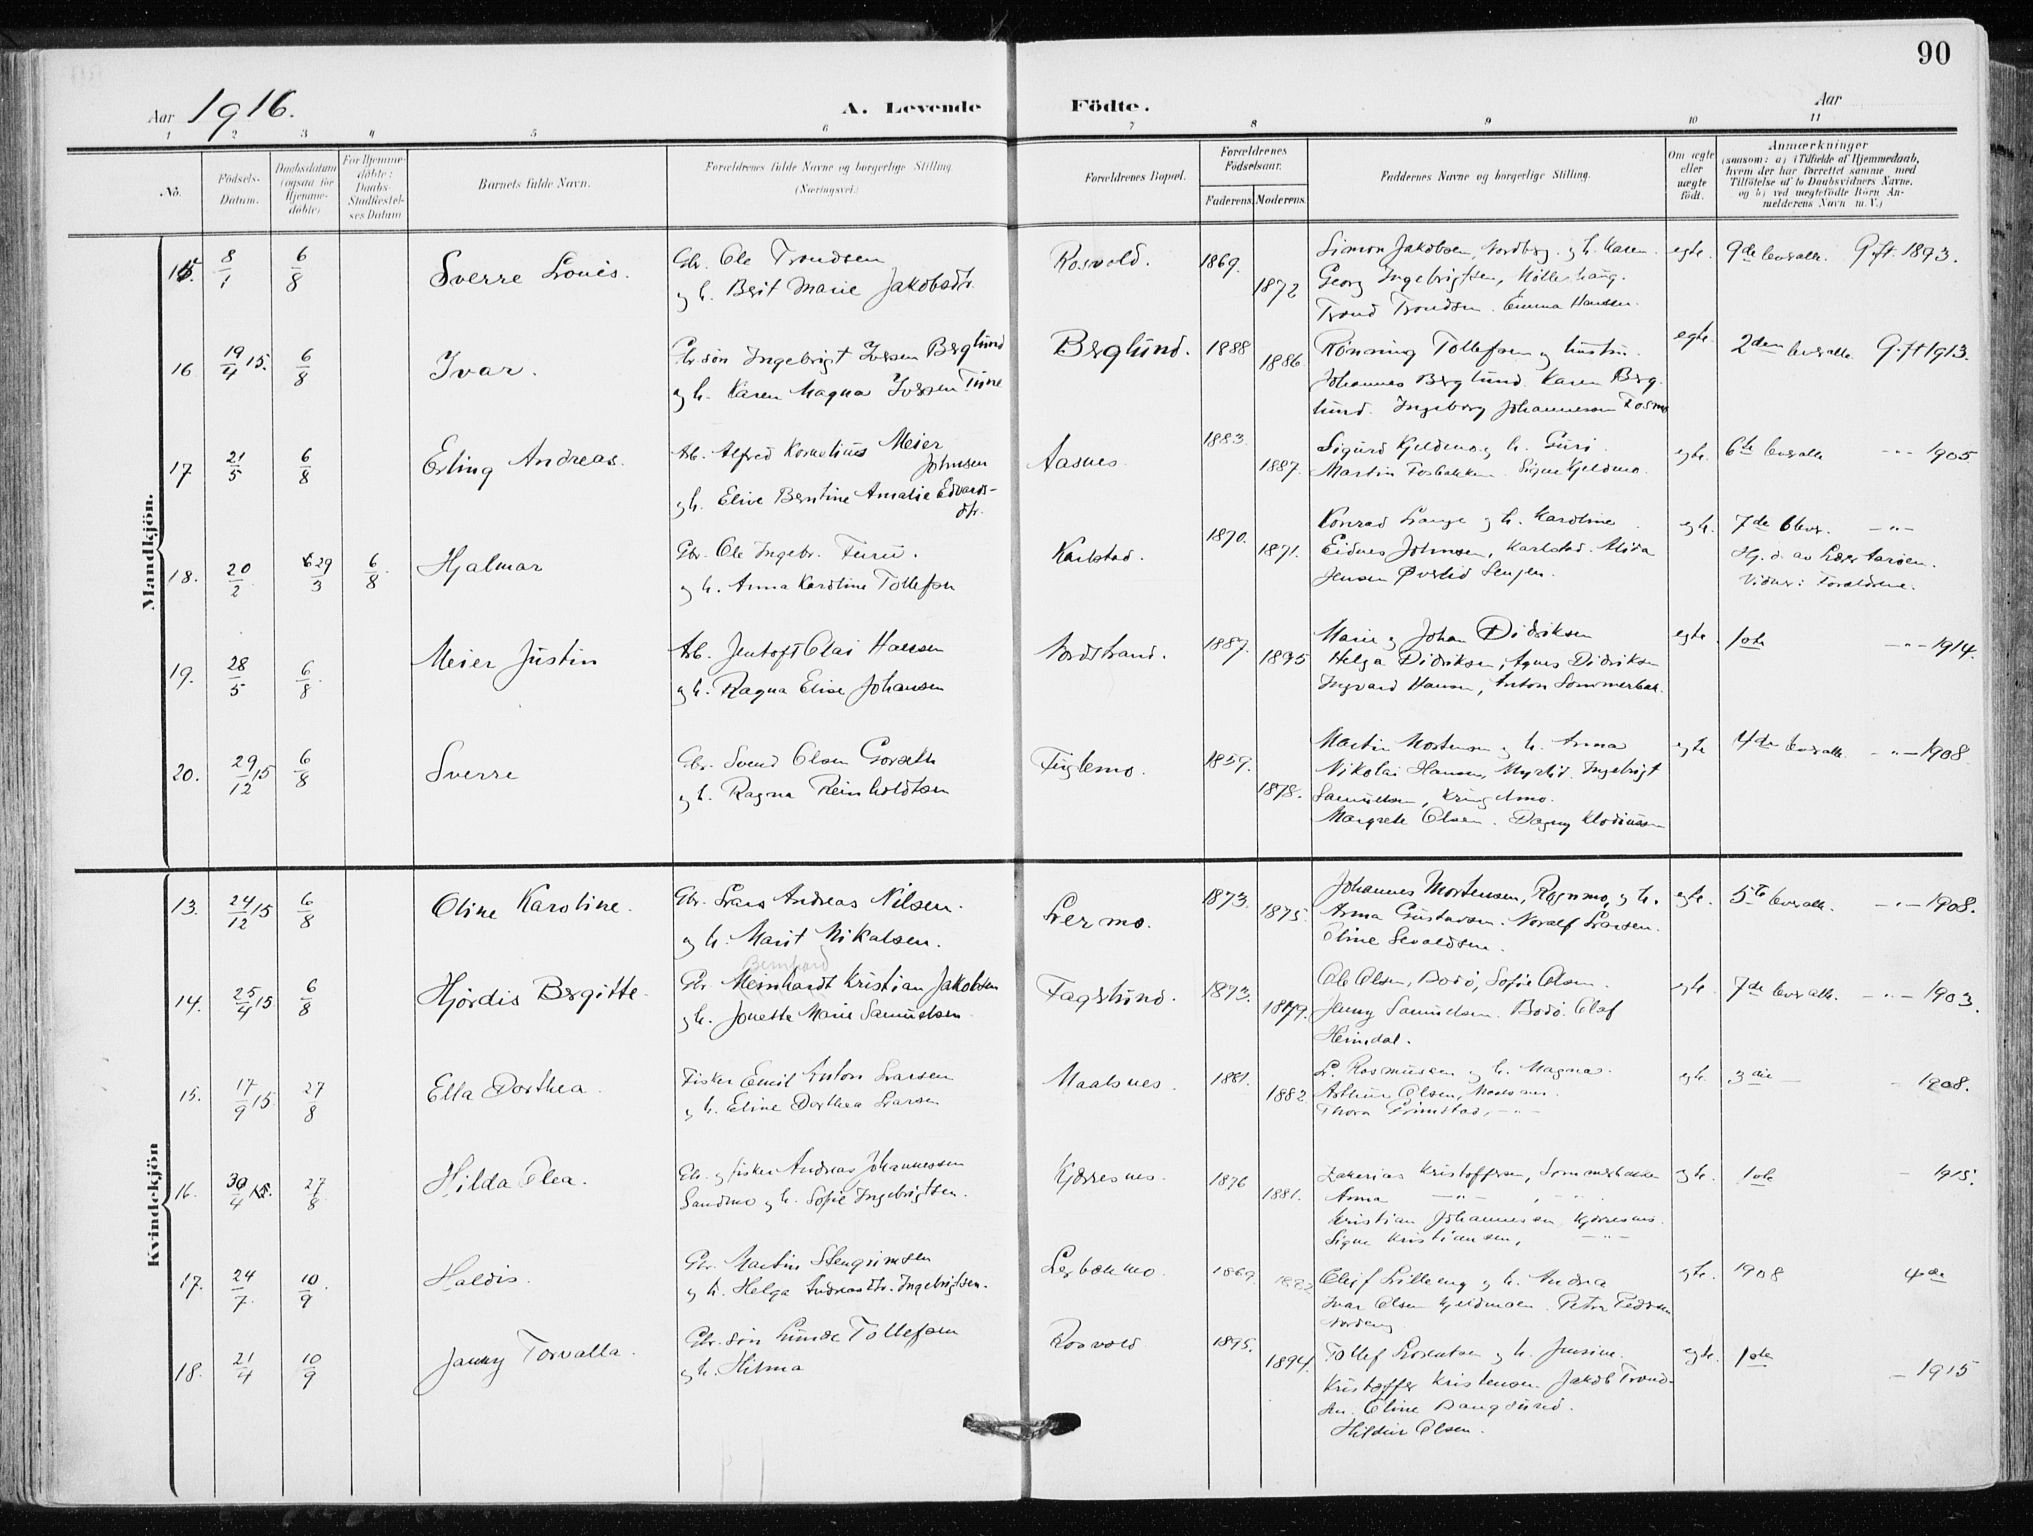 90
Aar 1916.
A. Levende Födte.
Aar
1 2 3 4 5 6 7 8 9 10 11
No.
Födsels-Datum.
Daabsdatum (ogsaa for Hjemme-döbte)
For Hjemme-döbte: Daabs-Stadfæstel-ses Datum
Barnets fulde Navn.
Forældrenes fulde Navne og borgerlige Stilling. (Næringsvei.)
Forældrenes Bopæl.
Forældrenes Födselsaar.
Faderens. Moderens.
Faddernes Navne og borgerlige Stilling.
Om ægte eller uægte födt.
Anmærkninger
(saasom: a) i Tilfælde af Hjemmedaab,
hvem der har forrettet samme med
Tilföielse af to Daabsvidners Navne.
og b) ved uægtefödte Börn An-
melderens Navn m. V.)
Mandkjön.
15. 8/1 6/8 Sverre Louis. Gbr. Ole Trondsen
og h. Berit Marie Jakobsdtr.
Rosvold. 1869. 1872
Simon Jakobsen, Nordberg. og h. Karen.
Georg Ingebrigtsen, Möllerhaug.
Trond Trondsen. Emma Hansen.
egte. 9de levr alle. Gift 1893.
16. 19/4 15. 6/8 Ivar. Gbr.søn Ingebrigt Iversen Berglund
og h. Karen Magna Iversen
Berglund. 1888 1886
Rønning Tollefsen og hustru.
Johannes Berglund. Karen Berg-
lund. Ingeborg Johannesen
egte. 2den levr alle Gift 1913.
17 21/5 6/8 Erling Andreas. Arb. Alfred Kornelius Meier
Johnsen
og h. Elive Berntine Amalie Edvards-
dtr.
Aasnes. 1883. 1887.
Sigurd Kjeldmo og h. Guri.
Martin Fosbakken. Signe Kjeldmo.
egte. 6te levr alle -"- 1905.
18. 20/2 29/3 6/8 Hjalmar Gbr. Ole Ingebr. Furu.
og h. Anna Karoline Tollefsen
Karlstad. 1870. 1871.
Konrad Lange og h. Karoline
Eidnes Johnsen, Karlstad. Alida
Jensen Øverlid Senjen.
egte. 7de 6 levr. -"-
Hj. d. av
Vidner: Forældrene.
19. 28/5 6/8. Meier Justin Arb. Jentoft Olai Hansen
og h. Ragna Elise Johansen
Nordstrand. 1887. 1895
Marie og Johan Didriksen
Helga Didriksen, Agnes Didriksen
Ingvard Hansen, Anton Sommerbak.
egte. 1ste -"- 1914.
20. 29/12 15 6/8 Sverre Gbr. Svend Olsen Gorseth
og h. Ragna Reinholdtsen
Fuglemo. 1859. 1878.
Martin Mortensen og h. Anna
Nikolai Hansen, Myrlid. Ingebrigt
Samuelsen,
Margrete Olsen. Dagny Klodiussen
egte 4de levr alle -"- 1908.
Kvindekjön
13. 24/12 15 6/8 Oline Karoline. Gbr. Lars Andreas Nilsen.
og h. Marit Nikalsen.
Lermo. 1873. 1875.
Johannes Mortensen, Rognmo, og h.
Anna Gustavsen. Noralf Larsen.
Oline Sevaldsen.
egte. 5te levr alle. -"- 1908.
14. 25/4 15 6/8 Hjördis Bergitte. Bernhard
Gbr Meinhardt Kristian Jakobsen
og h. Jonette Marie Samuelsen.
Fagerlund. 1873. 1879.
Ole Olsen, Bodö, Sofie Olsen.
Jenny Samuelsen. Bodö. Olaf
Heimdal.
egte. 7de levr alle. -"- 1903.
15. 17/9 15. 27/8 Ella Dorthea. Fisker Emil Anton Larsen
og h. Eline Dorthea Larsen
Maalsnes. 1881. 1882.
L. Rasmussen og h. Magna.
Arthur Olsen, Maalsnes.
Thora Grimstad, -"-
egte. 3die - 1908.
16. 30/4 15. 27/8 Hilda Olea. Gbr. og fisker Andreas Johannessen
Sandmo og h. Sofie Ingebrigtsen.
Kjerresnes. 1876 1881.
Zakarias Kristoffersen, Sommerbakken
Anna -"-
Kristian Johannesen, Kjerresnes.
Signe Kristiansen, -"-
egte. 1ste - 1915.
17. 24/7. 10/9 Haldis. Gbr. Martin Stengrimsen
og h. Helga Andreasdtr. Ingebrigtsen.
1869. 1882
og h. Andrea
Ivar Olsen Kjeldmoen. Petra Pedersen
egte. 1908 4de
18. 21/4 10/9 Janny Torvalla. Gbr. søn Lunde Tollefsen
og h. Hilma
Rosvold 1895. 1894.
Tollef Lorentsen og h. Jensine.
Kristoffer Kristensen. Jakob Trond-
sen. Oline Bangsund.
Hildur Olsen.
egte. 1ste - 1915